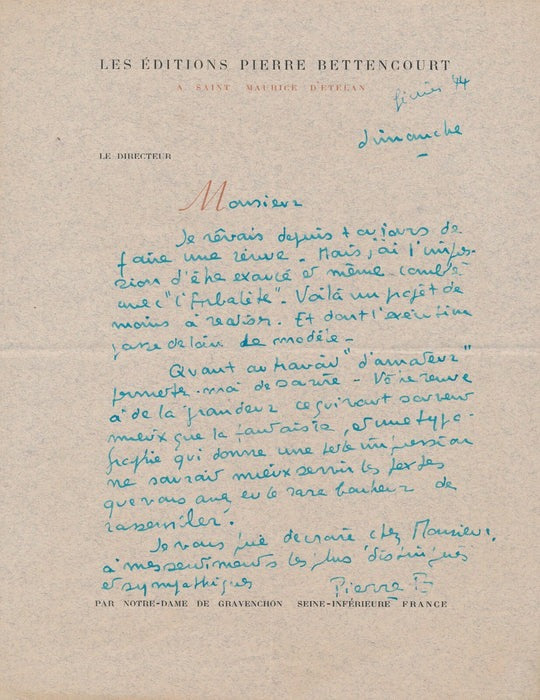 LES ÉDITIONS PIERRE BETTENCOURT
A SAINT MAURICE D'ETELAN
février 44
dimanche
LE DIRECTEUR
Monsieur
Je rêvais depuis toujours de
faire une revue. Mais j'ai l'impres-
sion d'être exaucé et même comblé
avec "l'Arbalète". Voilà un projet de
moins à réaliser. Et dont l'exécution
passe de loin le modèle -
Quant au travail "d'amateur"
permettez-moi de sourire - Votre revue
a de la grandeur ce qui vaut souvent
mieux que la fantaisie, et une typo-
graphie qui donne une telle impression
ne saurait mieux servir les textes
que vous avez eu le rare bonheur de
rassembler.
Je vous prie de croire cher Monsieur,
à mes sentiments les plus distingués
et sympathiques
Pierre B
PAR NOTRE-DAME DE GRAVENCHON SEINE-INFÉRIEURE FRANCE